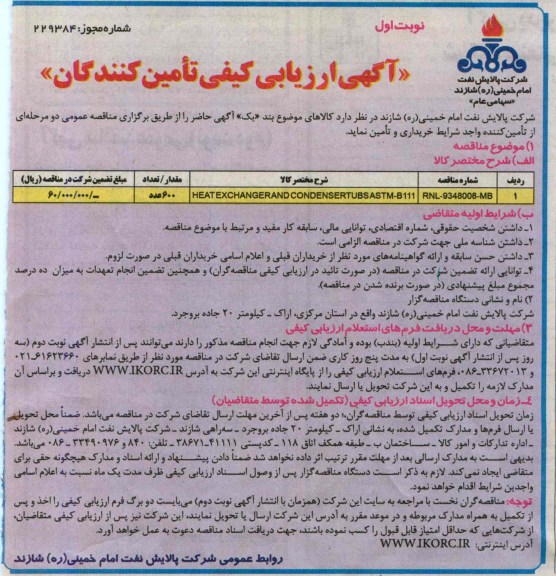 شماره مجوز: ۲۲۹۳۸۴
نوبت اول
شرکت پالایش نفت
امام خمینی(ره) شازند
«سهامی عام»
«آگهی ارزیابی کیفی تأمین کنندگان»
شرکت پالایش نفت امام خمینی(ره) شازند در نظر دارد کالاهای موضوع بند «یک» آگهی حاضر را از طریق برگزاری مناقصه عمومی دو مرحله‌ای
از تأمین‌کننده واجد شرایط خریداری و تأمین نماید.
۱) موضوع مناقصه
الف) شرح مختصر کالا
ردیف شماره مناقصه شرح مختصر کالا مقدار / تعداد مبلغ تضمین شرکت در مناقصه (ریال)
۱ RNL-9348008-MB HEAT EXCHANGER AND CONDENSER TUBS ASTM-B111 ۶۰۰ عدد ۶۰/۰۰۰/۰۰۰/ــ
ب) شرایط اولیه متقاضی
۱ـ داشتن شخصیت حقوقی، شماره اقتصادی، توانایی مالی، سابقه کار مفید و مرتبط با موضوع مناقصه.
۲ـ داشتن شناسه ملی جهت شرکت در مناقصه الزامی است.
۳ـ داشتن حسن سابقه و ارائه گواهینامه‌های مورد نظر از خریداران قبلی و اعلام اسامی خریداران قبلی در صورت لزوم.
۴ـ توانایی ارائه تضمین شرکت در مناقصه (در صورت تائید در ارزیابی کیفی مناقصه‌گران) و همچنین تضمین انجام تعهدات به میزان ده درصد
مجموع مبلغ پیشنهادی (در صورت برنده شدن در مناقصه).
۲) نام و نشانی دستگاه مناقصه‌گزار
شرکت پالایش نفت امام خمینی(ره) شازند واقع در استان مرکزی، اراک ـ کیلومتر ۲۰ جاده بروجرد.
۳) مهلت و محل دریافت فرم‌های استعلام ارزیابی کیفی
متقاضیانی که دارای شرایط اولیه (بندب) بوده و آمادگی لازم جهت انجام مناقصه مذکور را دارند می‌توانند پس از انتشار آگهی نوبت دوم (سه
روز پس از انتشار آگهی نوبت اول) به مدت پنج روز کاری ضمن ارسال تقاضای شرکت در مناقصه مورد نظر از طریق نمابرهای ۶۱۶۲۳۶۶۰-۰۲۱
و ۳۳۶۷۲۰۱۳-۰۸۶ فرم‌های استعلام ارزیابی کیفی را از پایگاه اینترنتی این شرکت به آدرس WWW.IKORC.IR دریافت و براساس آن
مدارک لازمه را تکمیل و به این شرکت تحویل یا ارسال نمایند.
۴ـ زمان و محل تحویل اسناد ارزیابی کیفی (تکمیل شده توسط متقاضیان)
زمان تحویل اسناد ارزیابی کیفی توسط مناقصه‌گران؛ دو هفته پس از آخرین مهلت ارسال تقاضای شرکت در مناقصه می‌باشد. ضمناً محل تحویل
یا ارسال فرم‌ها و مدارک تکمیل شده، به نشانی اراک ـ کیلومتر ۲۰ جاده بروجرد ـ سه‌راهی شازند ـ شرکت پالایش نفت امام خمینی(ره) شازند
ـ اداره تدارکات و امور کالا ـ ساختمان ب ـ طبقه همکف اتاق ۱۱۸ ـ کدپستی ۴۱۱۱۱-۳۸۶۷۱ ـ تلفن: ۸۴۰ و ۳۳۴۹۰۹۷۶ - ۰۸۶ می‌باشد.
بدیهی است به مدارک ارسالی بعد از مهلت مقرر ترتیب اثر داده نخواهد شد ضمناً دادن پیشنهاد و ارائه اسناد و مدارک هیچگونه حقی برای
متقاضی ایجاد نمی‌کند. لازم به ذکر است دستگاه مناقصه‌گزار پس از وصول اسناد ارزیابی کیفی ظرف مدت یک ماه نسبت به اعلام اسامی
واجدین شرایط اقدام خواهد نمود.
توجه: مناقصه‌گران نخست با مراجعه به سایت این شرکت (همزمان با انتشار آگهی نوبت دوم) می‌بایست دو برگ فرم ارزیابی کیفی را اخذ و پس
از تکمیل به همراه مدارک مربوطه و در موعد مقرر به آدرس این شرکت ارسال یا تحویل نمایند، این شرکت نیز پس از ارزیابی کیفی متقاضیان،
از شرکت‌هایی که حداقل امتیاز قابل قبول را کسب نموده باشند، جهت دریافت اسناد مناقصه دعوت به عمل خواهد آورد.
آدرس اینترنتی: WWW.IKORC.IR
روابط عمومی شرکت پالایش نفت امام خمینی(ره) شازند